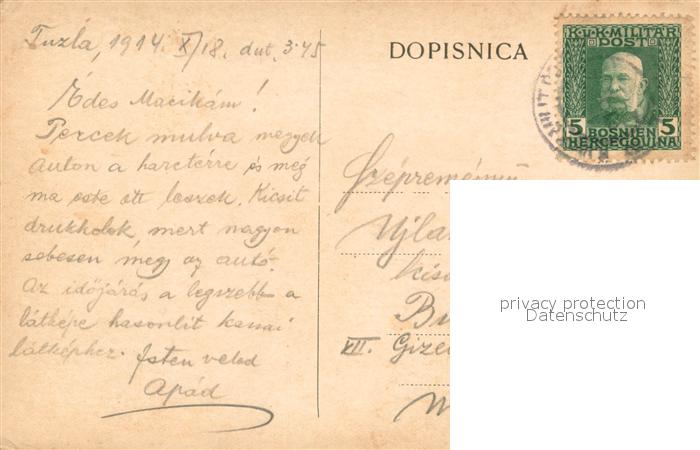 Tuzla, 1914. X/18. dut. 3·45
Édes Macikám!
Percek mulva megyek
auton a harctérre és még
ma este ott leszek. Kicsit
drukkolok, mert nagyon
sebesen megy az autó.
Az időjárás a legszebb a
látképe hasonlit
látképhez. Isten veled
Apád
DOPISNICA
K.u.K. MILITÄR
POST
5 BOSNIEN 5
HERCEGOVINA
Szépreményű
Ujla
kisa
Bu
VII. Gizel
privacy protection
Datenschutz